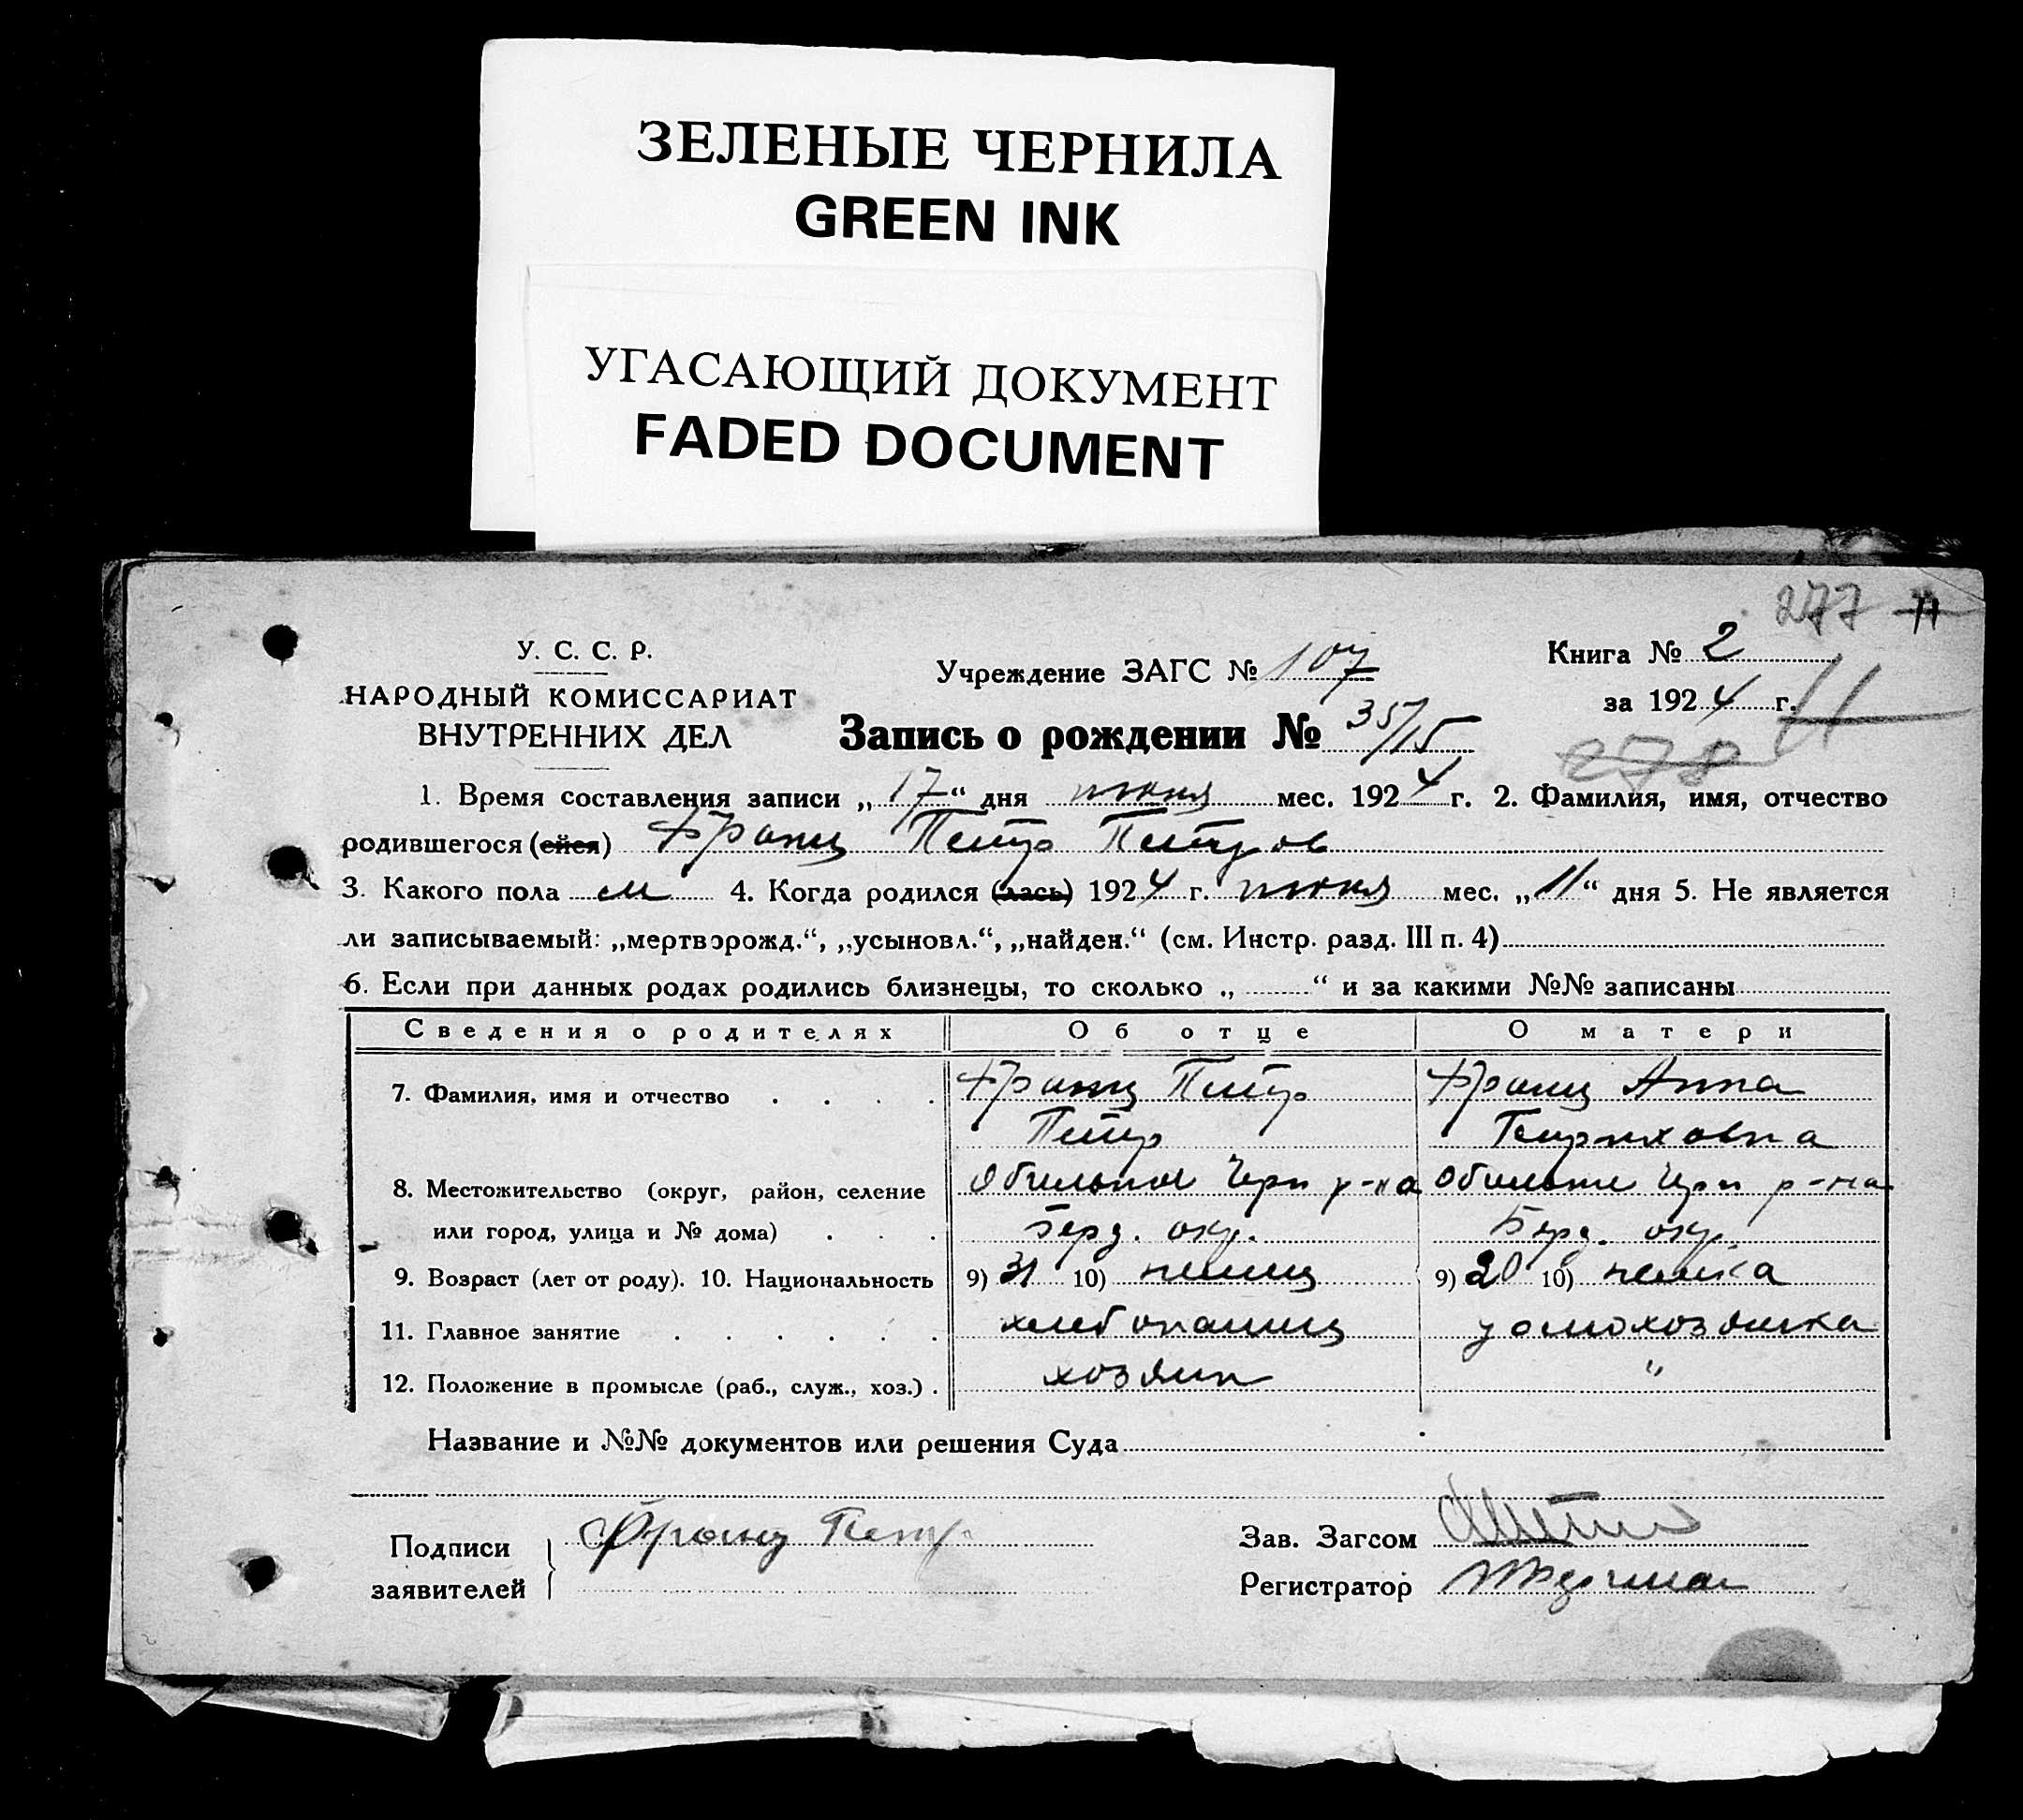 ЗЕЛЕНЫЕ ЧЕРНИЛА
GREEN INK
УГАСАЮЩИЙ ДОКУМЕНТ
FADED DOCUMENT
277 11
У. С. С. Р.
НАРОДНЫЙ КОМИССАРИАТ
ВНУТРЕННИХ ДЕЛ
Учреждение ЗАГС № 107
Запись о рождении № 35/15
Книга № 2
за 1924 г. 11
278
1. Время составления записи „17“ дня июня мес. 1924 г. 2. Фамилия, имя, отчество
родившегося (ейся) Франц Петр Петров
3. Какого пола м 4. Когда родился (лась) 1924 г. июня мес. „11“ дня 5. Не является
ли записываемый: „мертворожд.“, „усыновл.“, „найден.“ (см. Инстр. разд. III п. 4)
6. Если при данных родах родились близнецы, то сколько „ “ и за какими №№ записаны
Сведения о родителях Об отце О матери
7. Фамилия, имя и отчество Франц Петр Франц Анна
Петр Генриховна
8. Местожительство (округ, район, селение Обильное Черн р-на Обильное Черн р-на
или город, улица и № дома) Берд. окр. Берд. окр.
9. Возраст (лет от роду). 10. Национальность 9) 31 10) немец 9) 20 10) немка
11. Главное занятие хлебопашец домохозяйка
12. Положение в промысле (раб., служ., хоз.) хозяин "
Название и №№ документов или решения Суда
Подписи
заявителей Франц Петр
Зав. Загсом
Регистратор